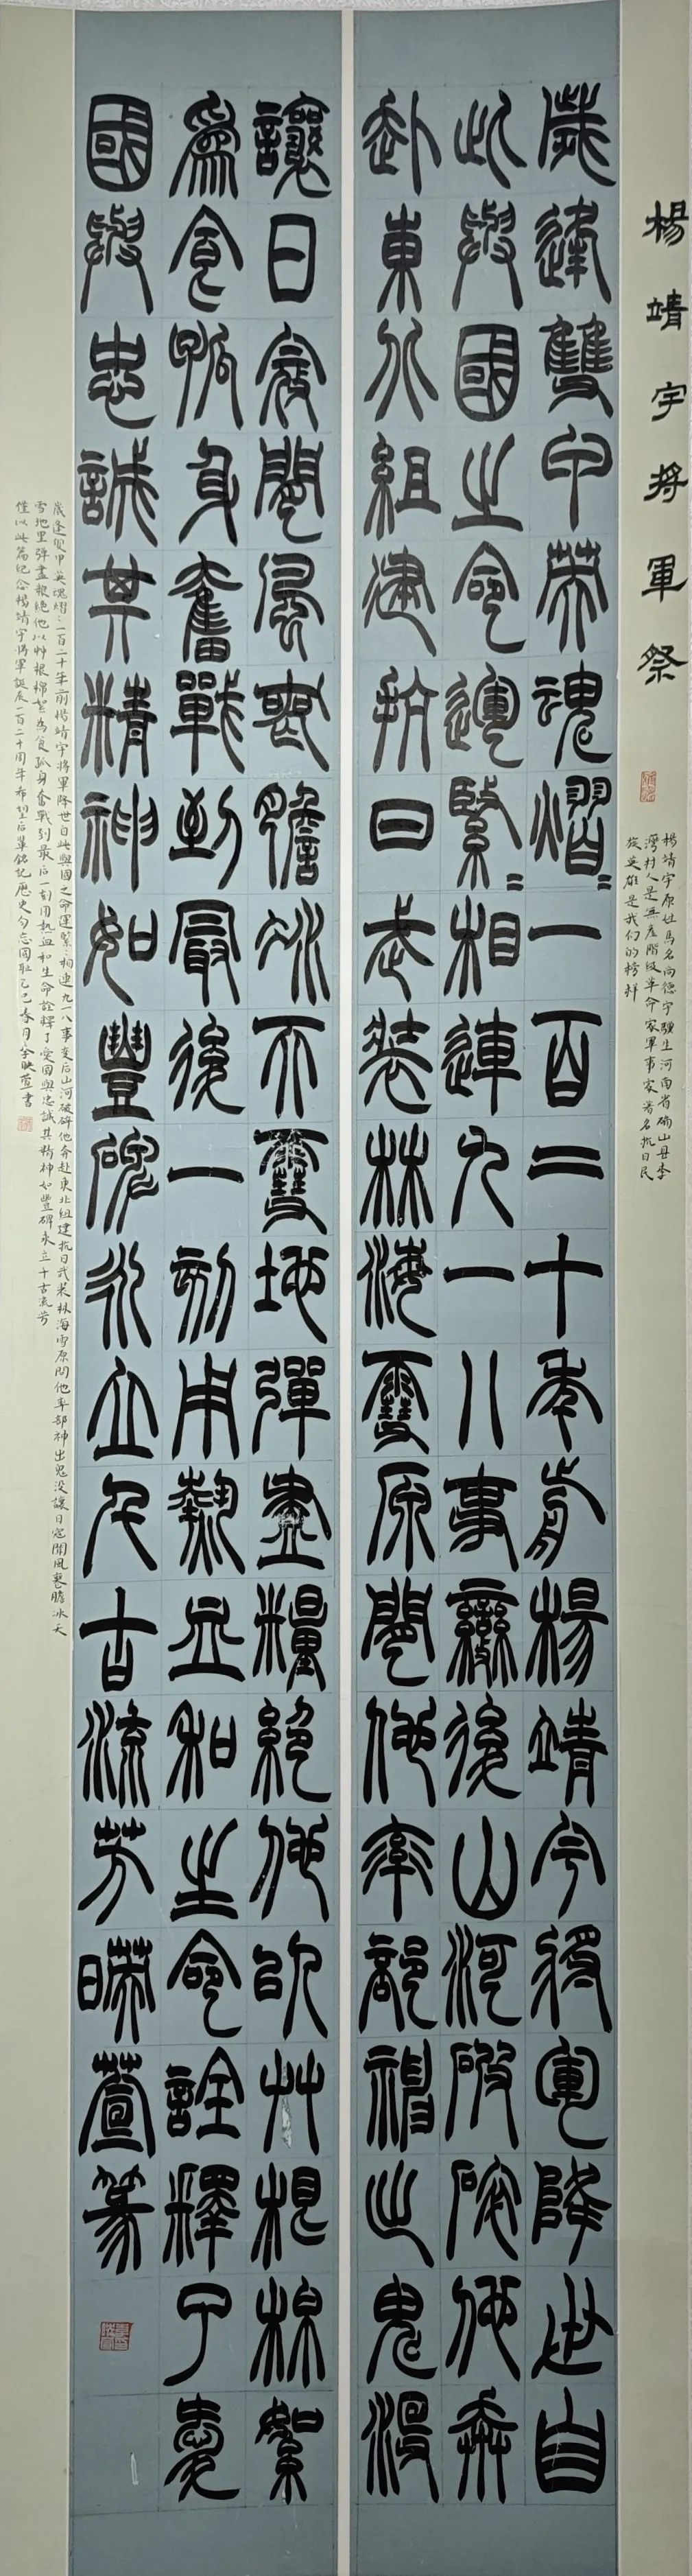 楊靖宇將軍祭
楊靖宇原姓馬名尚德字驥生河南省确山县李
灣村人是無產階級革命家軍事家著名抗日民
族英雄是我们的榜样
歲逢雙甲英魂熠=一百二十年前楊靖宇將軍降世自
此與國之命運緊=相連九一八事變後山河破碎他奔
赴東北組建抗日武裝林海雪原間他率部神出鬼沒
讓日寇聞風喪膽冰天雪地彈盡糧絕他以艸根棉絮
爲食孤身奮戰到最後一刻用熱血和生命詮釋了愛
國與忠誠其精神如豐碑永立千古流芳映萱篆
歲逢雙甲英魂熠=一百二十年前楊靖宇將軍降世自此與國之命運緊=相連九一八事变后山河破碎他奔赴東北組建抗日武裝林海雪原间他率部神出鬼没讓日寇聞風喪膽冰天
雪地里弹盡粮絕他以艸根棉絮為食孤身奮戰到最后一刻用熱血和生命詮釋了愛國與忠誠其精神如豐碑永立千古流芳
僅以此篇纪念楊靖宇將軍誕辰一百二十周年希望后輩銘記歷史勿忘國耻乙巳春月映萱書